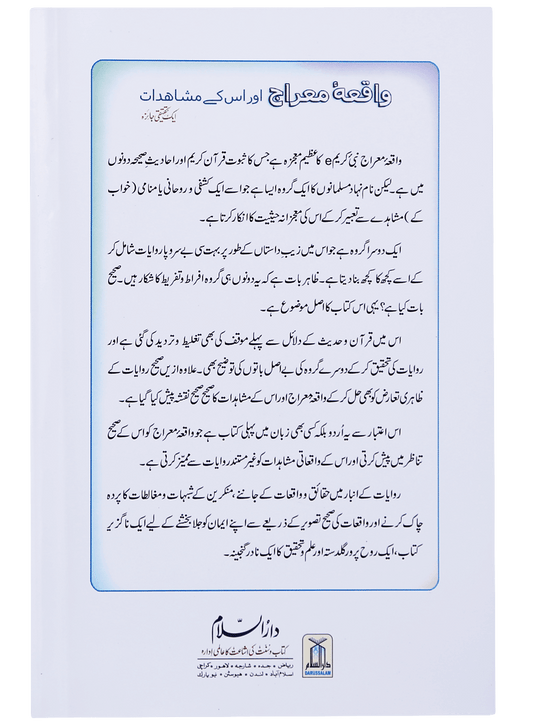 واقعۂ معراج اور اس کے مشاهدات
ایک تحقیقی جائزہ
واقعۂ معراج نبی کریم e کا عظیم معجزہ ہے جس کا ثبوت قرآن کریم اور احادیثِ صحیحہ دونوں
میں ہے۔ لیکن نام نہاد مسلمانوں کا ایک گروہ ایسا ہے جو اسے ایک کشفی و روحانی یا منامی (خواب
کے) مشاہدے سے تعبیر کر کے اس کی معجزانہ حیثیت کا انکار کرتا ہے۔
ایک دوسرا گروہ ہے جو اس میں زیبِ داستاں کے طور پر بہت سی بے سروپا روایات شامل کر
کے اسے کچھ کا کچھ بنا دیتا ہے۔ ظاہر بات ہے کہ یہ دونوں ہی گروہ افراط و تفریط کا شکار ہیں۔ صحیح
بات کیا ہے؟ یہی اس کتاب کا اصل موضوع ہے۔
اس میں قرآن و حدیث کے دلائل سے پہلے موقف کی بھی تغلیط و تردید کی گئی ہے اور
روایات کی تحقیق کر کے دوسرے گروہ کی بے اصل باتوں کی توضیح بھی۔ علاوہ ازیں صحیح روایات کے
ظاہری تعارض کو بھی حل کر کے واقعۂ معراج اور اس کے مشاہدات کا صحیح صحیح نقشہ پیش کیا گیا ہے۔
اس اعتبار سے یہ اُردو بلکہ کسی بھی زبان میں پہلی کتاب ہے جو واقعۂ معراج کو اس کے صحیح
تناظر میں پیش کرتی اور اس کے واقعاتی مشاہدات کو غیر مستند روایات سے ممیّز کرتی ہے۔
روایات کے انبار میں حقائق و واقعات کے جاننے، منکرین کے شبہات و مغالطات کا پردہ
چاک کرنے اور واقعات کی صحیح تصویر کے ذریعے سے اپنے ایمان کو جلا بخشنے کے لیے ایک ناگزیر
کتاب، ایک روح پرور گلدستہ اور علم و تحقیق کا ایک نادر گنجینہ۔
دارالسّلام
کتاب و سُنّت کی اشاعت کا عالمی ادارہ
ریاض • جدہ • شارجہ • لاہور • کراچی
اسلام آباد • لندن • ہیوسٹن • نیو یارک
دارالسلام
DARUSSALAM